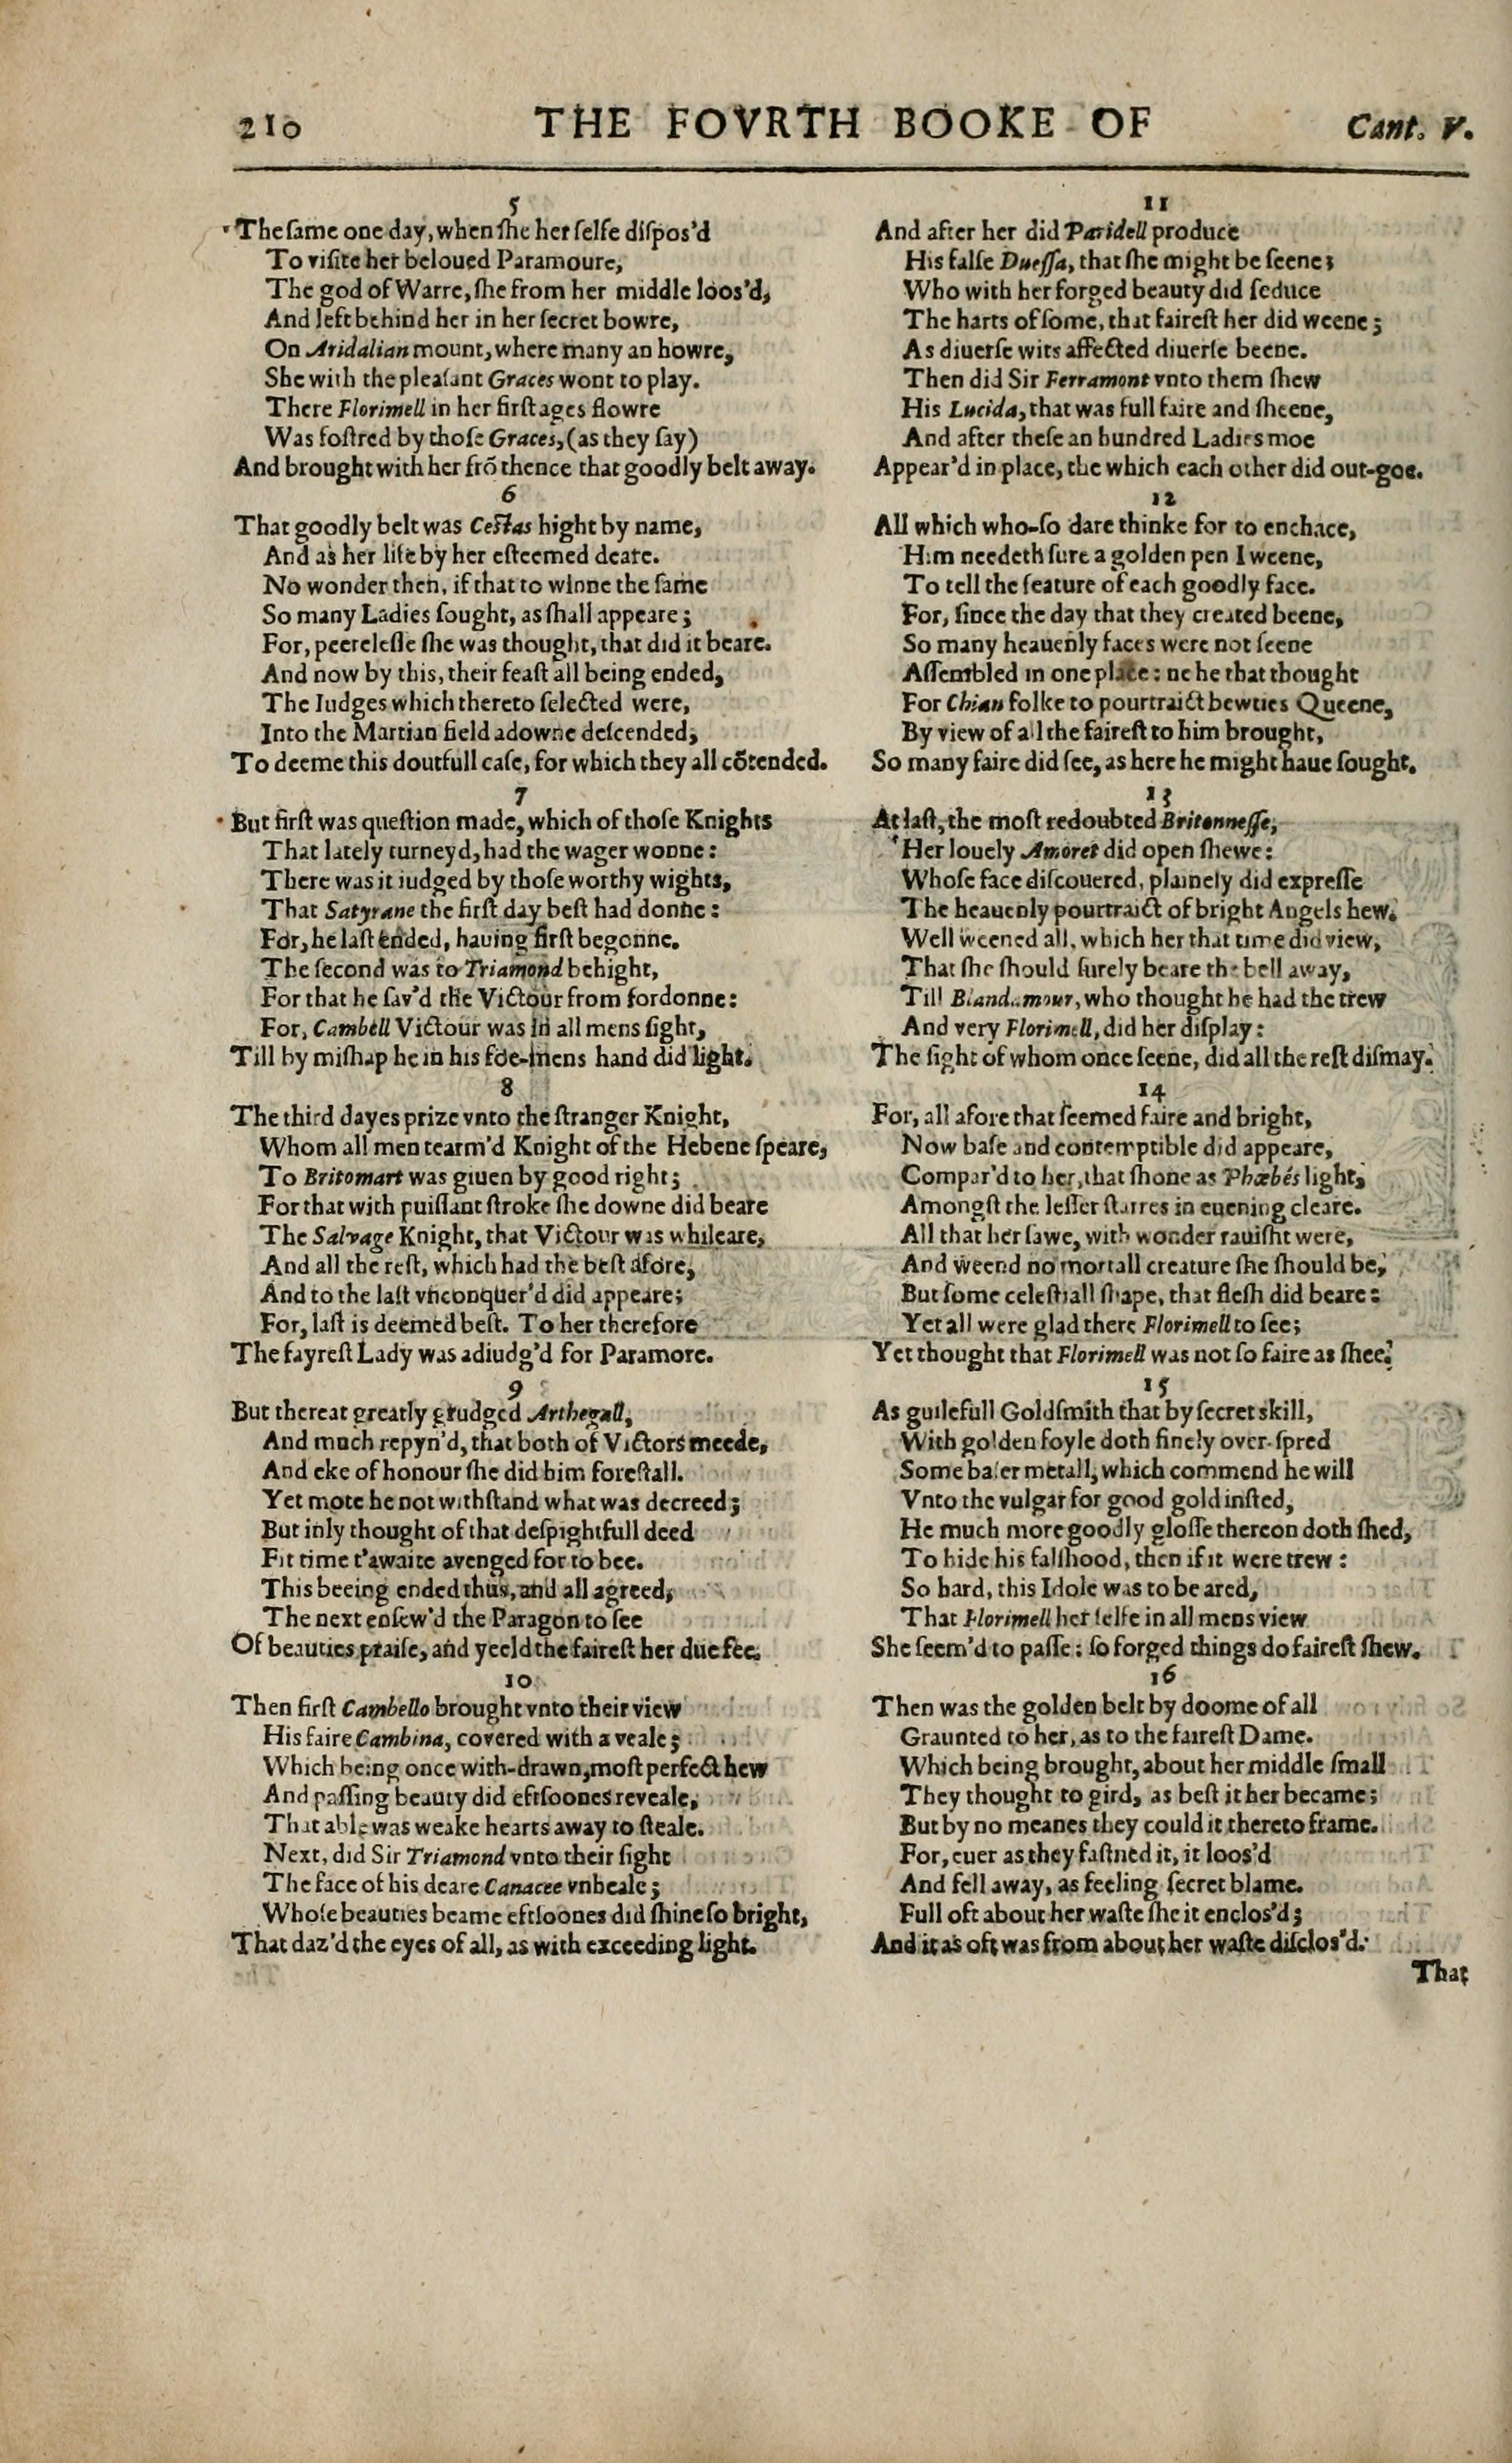 210 THE FOVRTH BOOKE OF Cant. V.
5
The ſame one day, when ſhe her ſelfe diſpos'd
To viſite her beloued Paramoure,
The god of Warre, ſhe from her middle loos'd,
And left behind her in her ſecret bowre,
On Aridalian mount, where many an howre,
She with the pleaſant Graces wont to play.
There Florimell in her firſt ages flowre
Was foſtred by thoſe Graces, (as they ſay)
And brought with her frō thence that goodly belt away.
6
That goodly belt was Ceſtas hight by name,
And as her life by her eſteemed deare.
No wonder then, if that to winne the ſame
So many Ladies ſought, as ſhall appeare;
For, peereleſſe ſhe was thought, that did it beare.
And now by this, their feaſt all being ended,
The Iudges which thereto ſelected were,
Into the Martian field adowne deſcended,
To deeme this doutfull caſe, for which they all cōtended.
7
But firſt was queſtion made, which of thoſe Knights
That lately turneyd, had the wager wonne:
There was it iudged by thoſe worthy wights,
That Satyrane the firſt day beſt had donne:
For, he laſt ended, hauing firſt begonne.
The ſecond was to Triamond behight,
For that he ſav'd the Victour from fordonne:
For, Cambell Victour was in all mens ſight,
Till by miſhap he in his foe-mens hand did light.
8
The third dayes prize vnto the ſtranger Knight,
Whom all men tearm'd Knight of the Hebene ſpeare,
To Britomart was giuen by good right;
For that with puiſſant ſtroke ſhe downe did beare
The Salvage Knight, that Victour was whileare,
And all the reſt, which had the beſt afore,
And to the laſt vnconquer'd did appeare;
For, laſt is deemed beſt. To her therefore
The fayreſt Lady was adiudg'd for Paramore.
9
But thereat greatly grudged Arthegall,
And much repyn'd, that both of Victors meede,
And eke of honour ſhe did him foreſtall.
Yet mote he not withſtand what was decreed;
But inly thought of that deſpightfull deed
Fit time t'awaite avenged for to bee.
This beeing ended thus, and all agreed,
The next enſew'd the Paragon to ſee
Of beauties praiſe, and yeeld the faireſt her due fee.
10
Then firſt Cambello brought vnto their view
His faire Cambina, covered with a veale;
Which being once with-drawn, moſt perfect hew
And paſſing beauty did eftſoones reveale,
That able was weake hearts away to ſteale.
Next, did Sir Triamond vnto their ſight
The face of his deare Canacee vnheale;
Whoſe beauties beame eftſoones did ſhine ſo bright,
That daz'd the eyes of all, as with exceeding light.
11
And after her did Paridell produce
His falſe Dueſſa, that ſhe might be ſeene;
Who with her forged beauty did ſeduce
The harts of ſome, that faireſt her did weene;
As diuerſe wits affected diuerſe beene.
Then did Sir Ferramont vnto them ſhew
His Lucida, that was full faire and ſheene,
And after theſe an hundred Ladies moe
Appear'd in place, the which each other did out-goe.
12
All which who-ſo dare thinke for to enchace,
Him needeth ſure a golden pen I weene,
To tell the feature of each goodly face.
For, ſince the day that they created beene,
So many heauenly faces were not ſeene
Aſſembled in one place: ne he that thought
For Chian folke to pourtraict bewties Queene,
By view of all the faireſt to him brought,
So many faire did ſee, as here he might haue ſought.
13
At laſt, the moſt redoubted Britonneſſe,
Her louely Amoret did open ſhewe:
Whoſe face diſcouered, plainely did expreſſe
The heauenly pourtraict of bright Angels hew.
Well weened all, which her that time did view,
That ſhe ſhould ſurely beare the bell away,
Till Blandamour, who thought he had the trew
And very Florimell, did her diſplay:
The ſight of whom once ſeene, did all the reſt diſmay.
14
For, all afore that ſeemed faire and bright,
Now baſe and contemptible did appeare,
Compar'd to her, that ſhone as Phœbés light,
Amongſt the leſſer ſtarres in euening cleare.
All that her ſawe, with wonder rauiſht were,
And weend no mortall creature ſhe ſhould be,
But ſome celeſtiall ſhape, that fleſh did beare:
Yet all were glad there Florimell to ſee;
Yet thought that Florimell was not ſo faire as ſhee.
15
As guilefull Goldſmith that by ſecret skill,
With golden foyle doth finely over-ſpred
Some baſer metall, which commend he will
Vnto the vulgar for good gold inſted,
He much more goodly gloſſe thereon doth ſhed,
To hide his falſhood, then if it were trew:
So hard, this Idole was to be ared,
That Florimell her ſelfe in all mens view
She ſeem'd to paſſe: ſo forged things do faireſt ſhew.
16
Then was the golden belt by doome of all
Graunted to her, as to the faireſt Dame.
Which being brought, about her middle ſmall
They thought to gird, as beſt it her became;
But by no meanes they could it thereto frame.
For, euer as they faſtned it, it loos'd
And fell away, as feeling ſecret blame.
Full oft about her waſte ſhe it enclos'd;
And it as oft was from about her waſte diſclos'd.
That